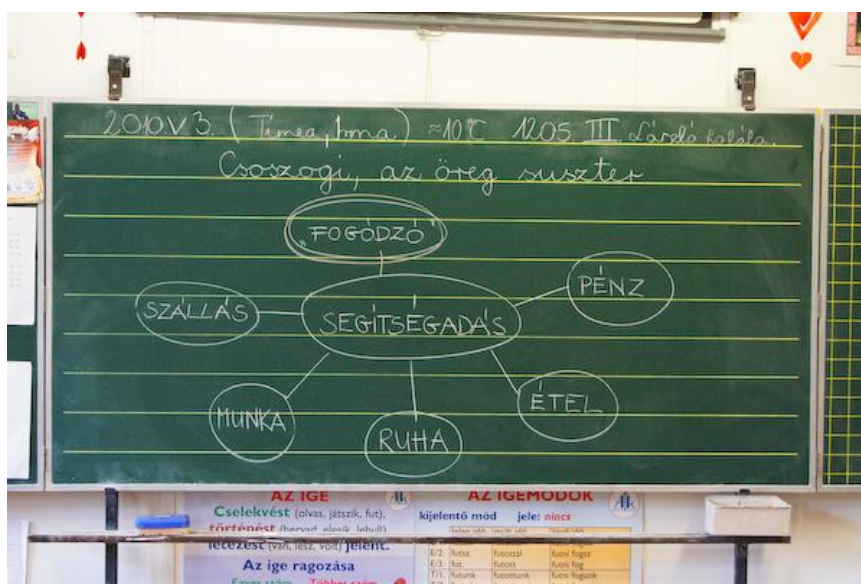 2010 V 3. (Tímea, Irma) ≈10°C 1205 III. László halála.
Csoszogi, az öreg suszter
"FOGÓDZÓ"
PÉNZ
SZÁLLÁS
SEGÍTSÉGADÁS
ÉTEL
MUNKA
RUHA
AZ IGE
Cselekvést (olvas, játszik, fut),
történést (hervad, elesik, lehull),
létezést (van, lesz, volt) jelent.
Az ige ragozása
Egyes szám Többes szám
AZ IGEMÓDOK
kijelentő mód jele: nincs
E/2. futsz futottál futni fogsz
E/3. fut futott futni fog
T/1. futunk futottunk futni fogunk